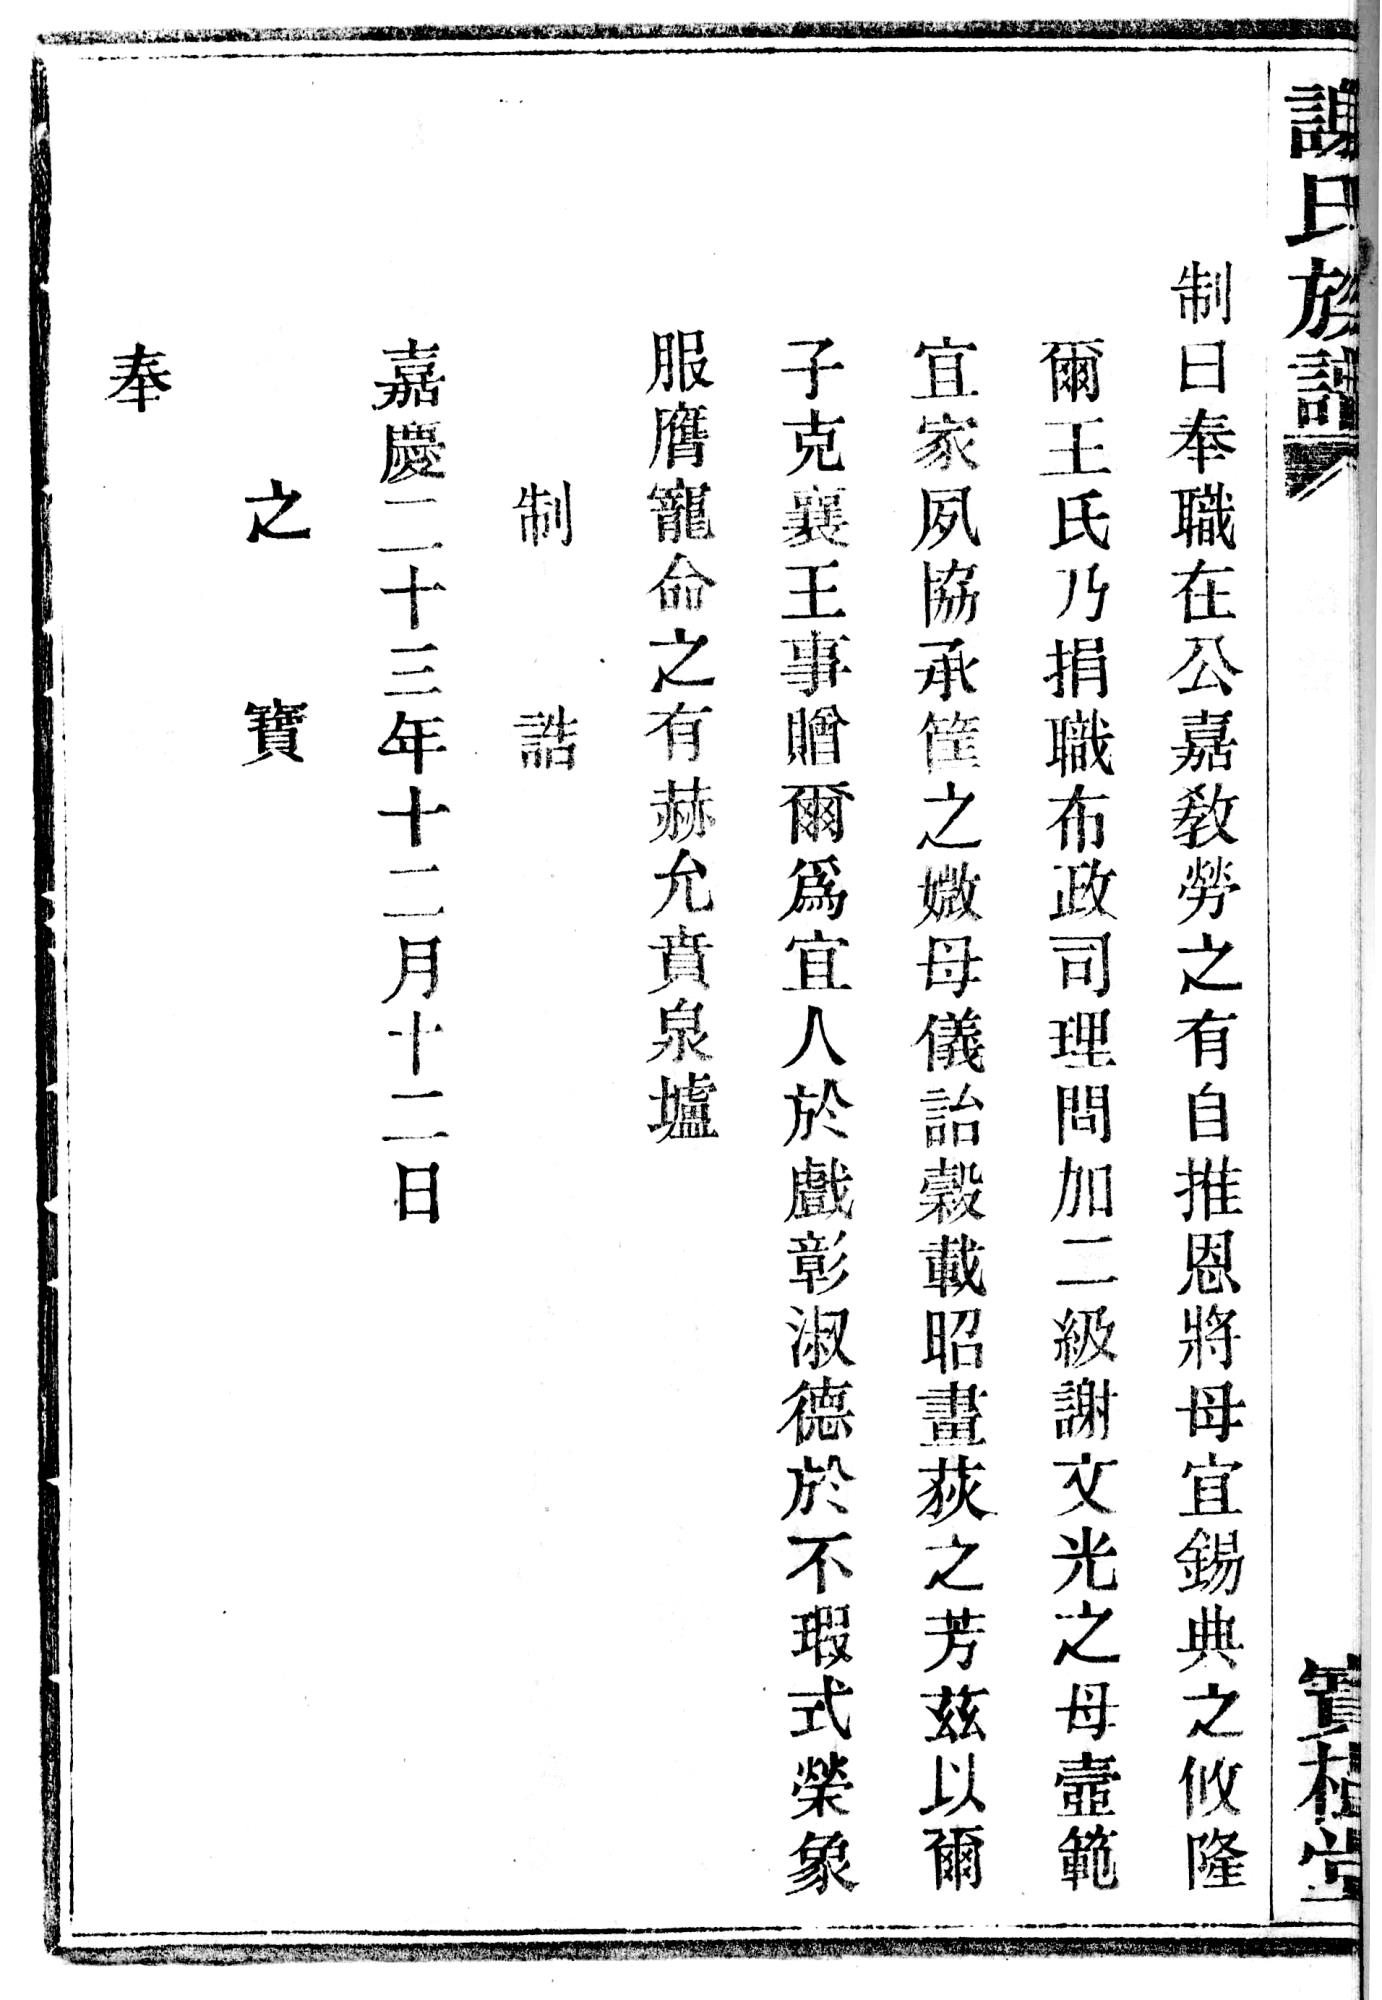 謝氏族譜
寶樹堂
制曰奉職在公嘉教勞之有自推恩將母宜錫典之攸隆
爾王氏乃捐職布政司理問加二級謝文光之母壼範
宜家夙協承筐之媺母儀詒榖載昭畫荻之芳茲以爾
子克襄王事贈爾為宜人於戲彰淑德於不瑕式榮象
服膺寵命之有赫允賁泉壚
制誥
嘉慶二十三年十二月十二日
之寶
奉